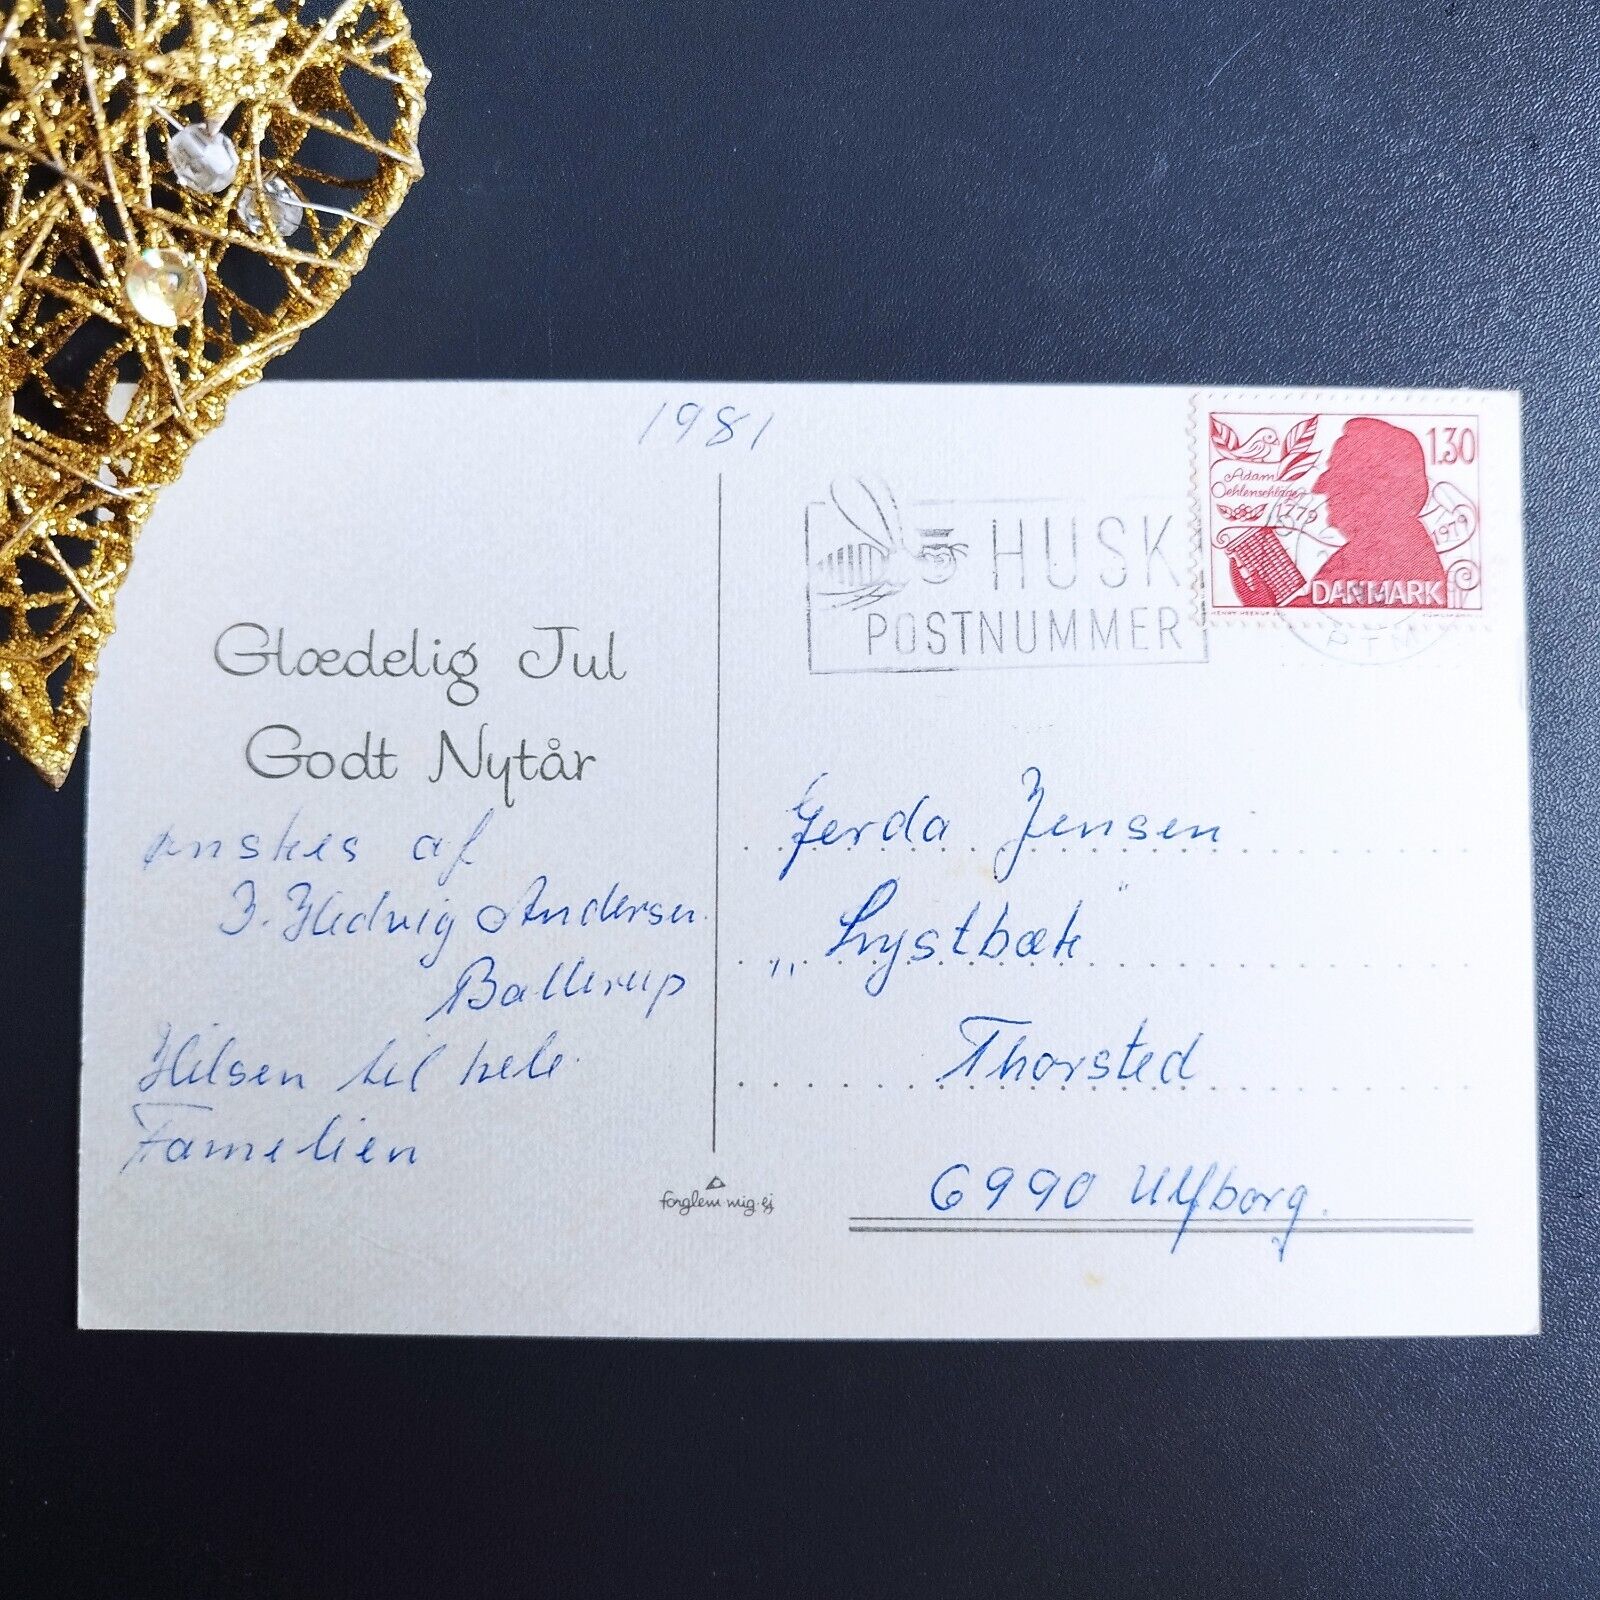 1981
Adam
Oehlenschläger
1779
1.30
1979
DANMARK
HUSK
POSTNUMMER
PTM
Glædelig Jul
Godt Nytår
ønskes af
J. Hedvig Andersen.
Ballerup
Hilsen til hele
Famelien
forglem-mig-ej
Gerda Jensen
„Lystbæk"
Thorsted
6990 Ulfborg.